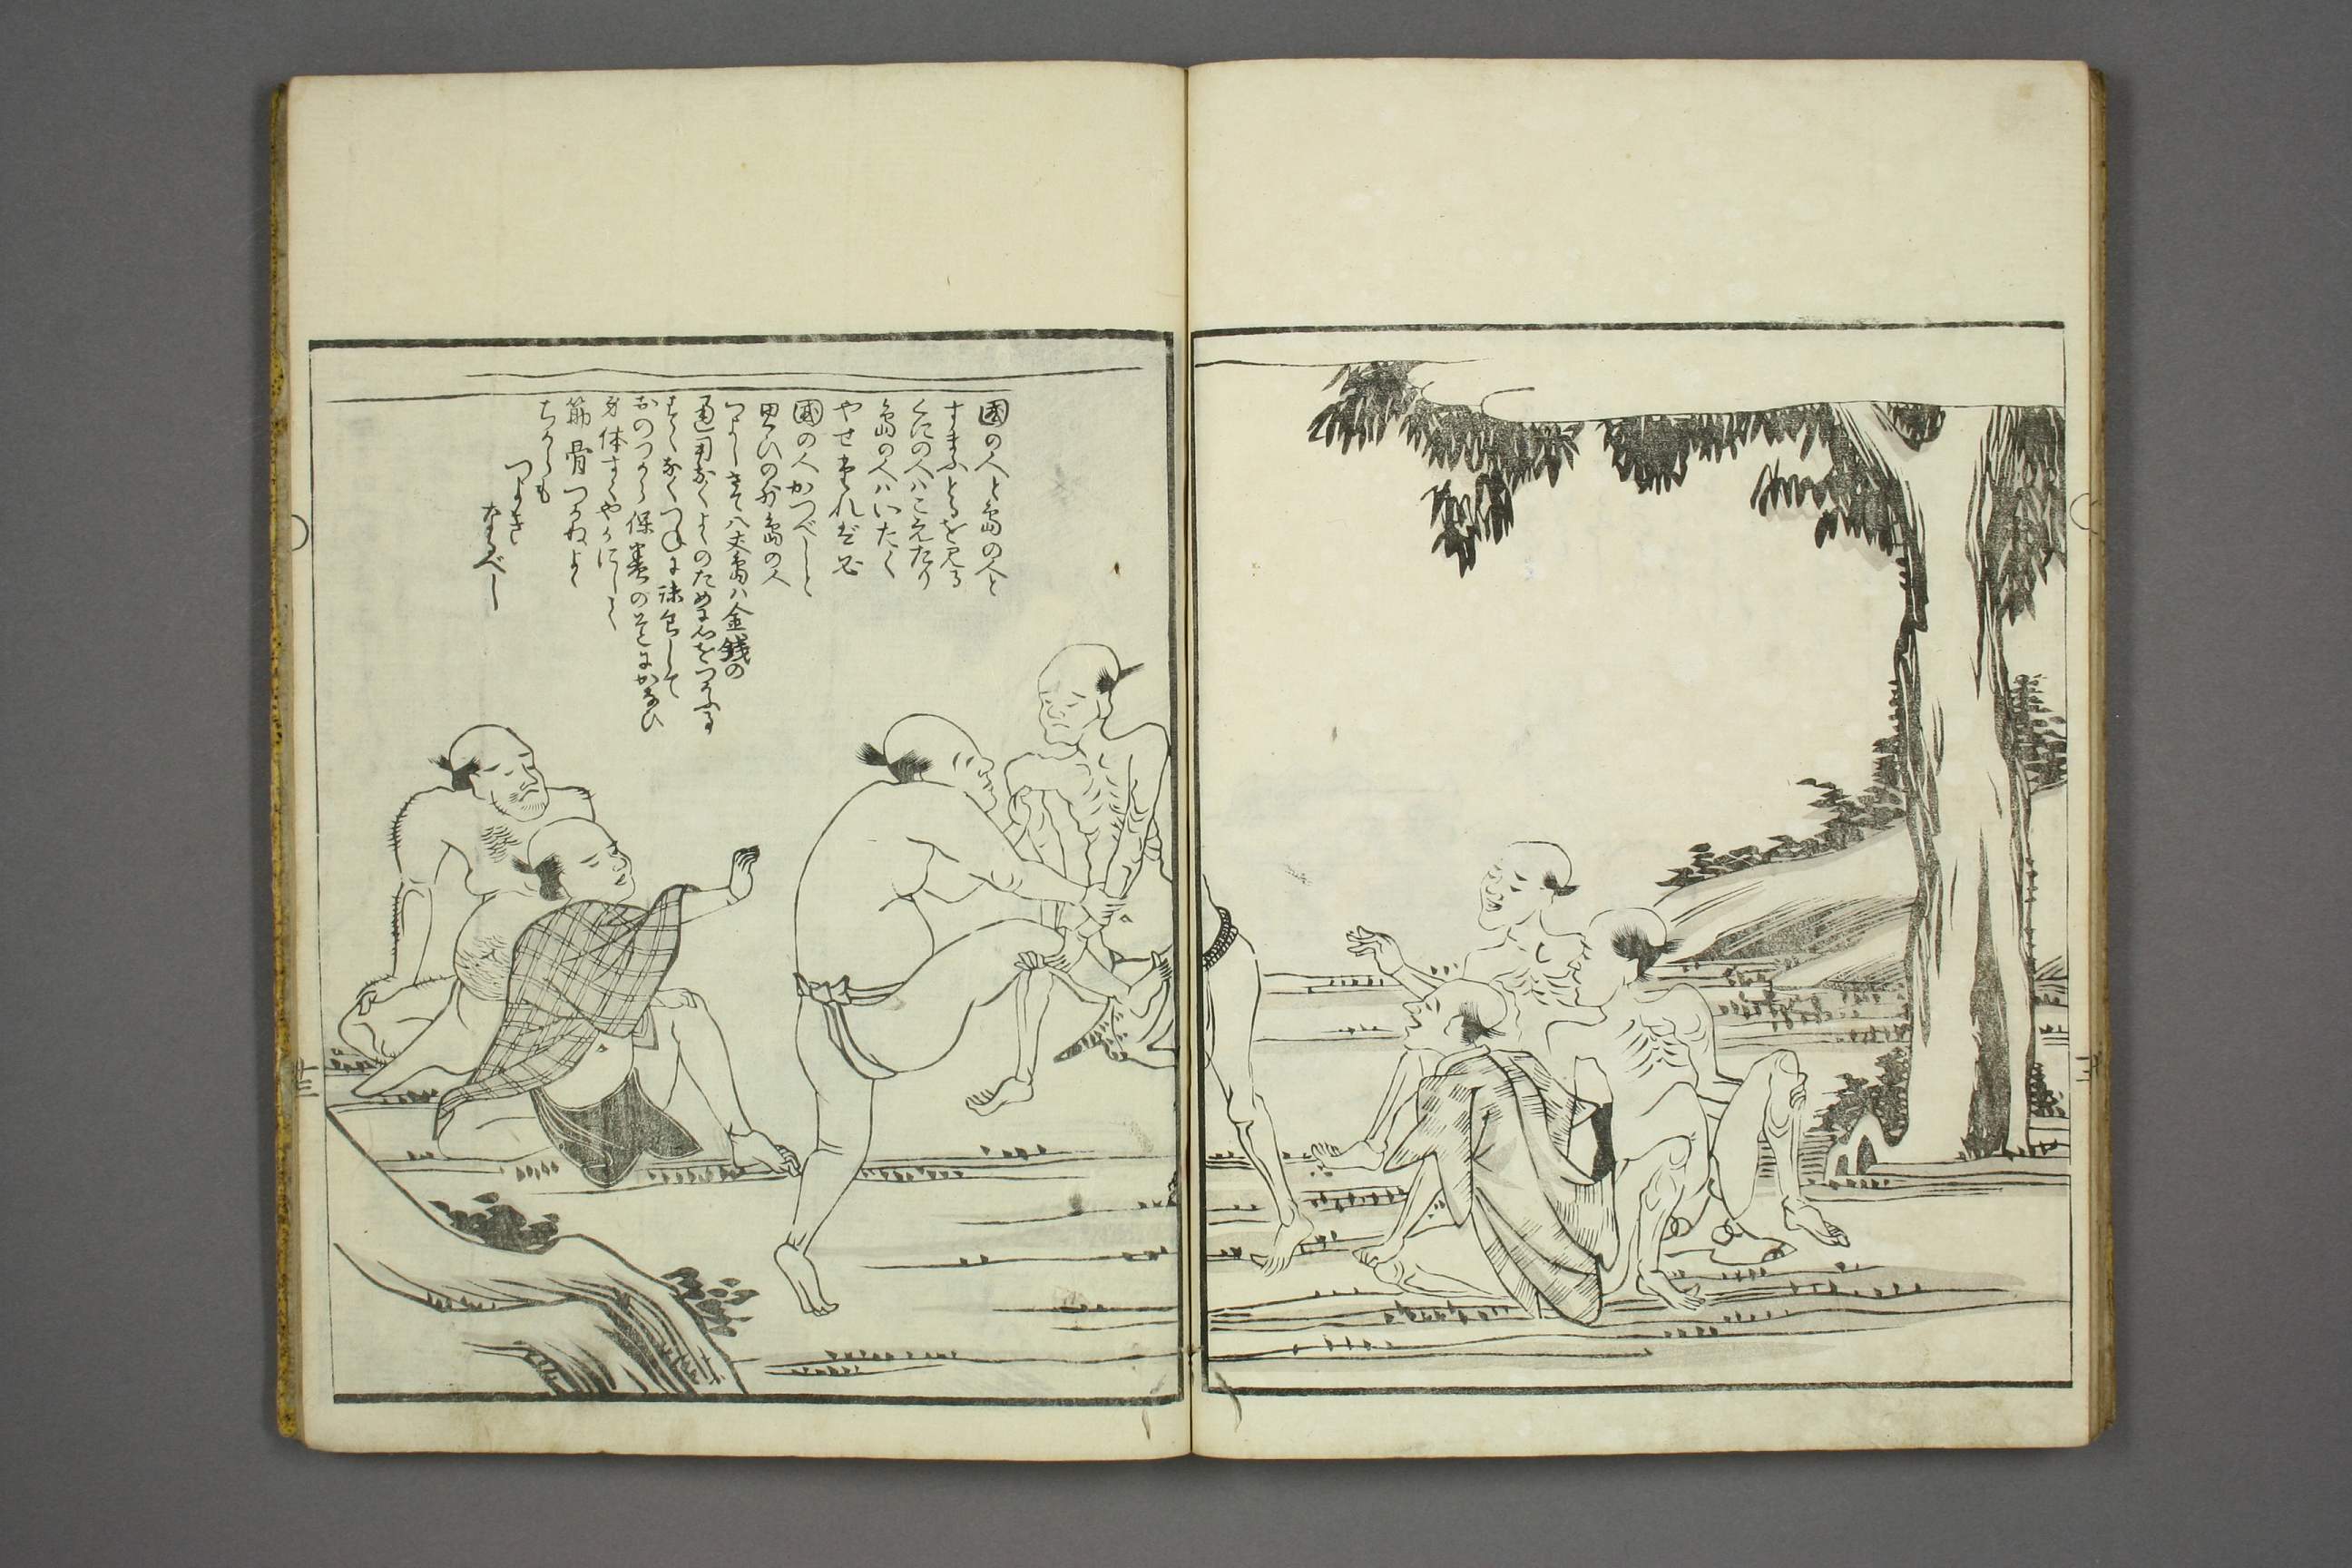 國の人と島の人と
すまふとるを見る
くにの人ハこえたり
島の人ハいたく
やせ
國の人かつべしと
思ひの外島の人
つよしさて八丈島ハ金銭の
通用なくよのために心をつかふる
なくつねに
おのつから保養の かなひ
身体すくやかにして
筋骨つかねよく
ちからも
つよき
なるべし
廿三